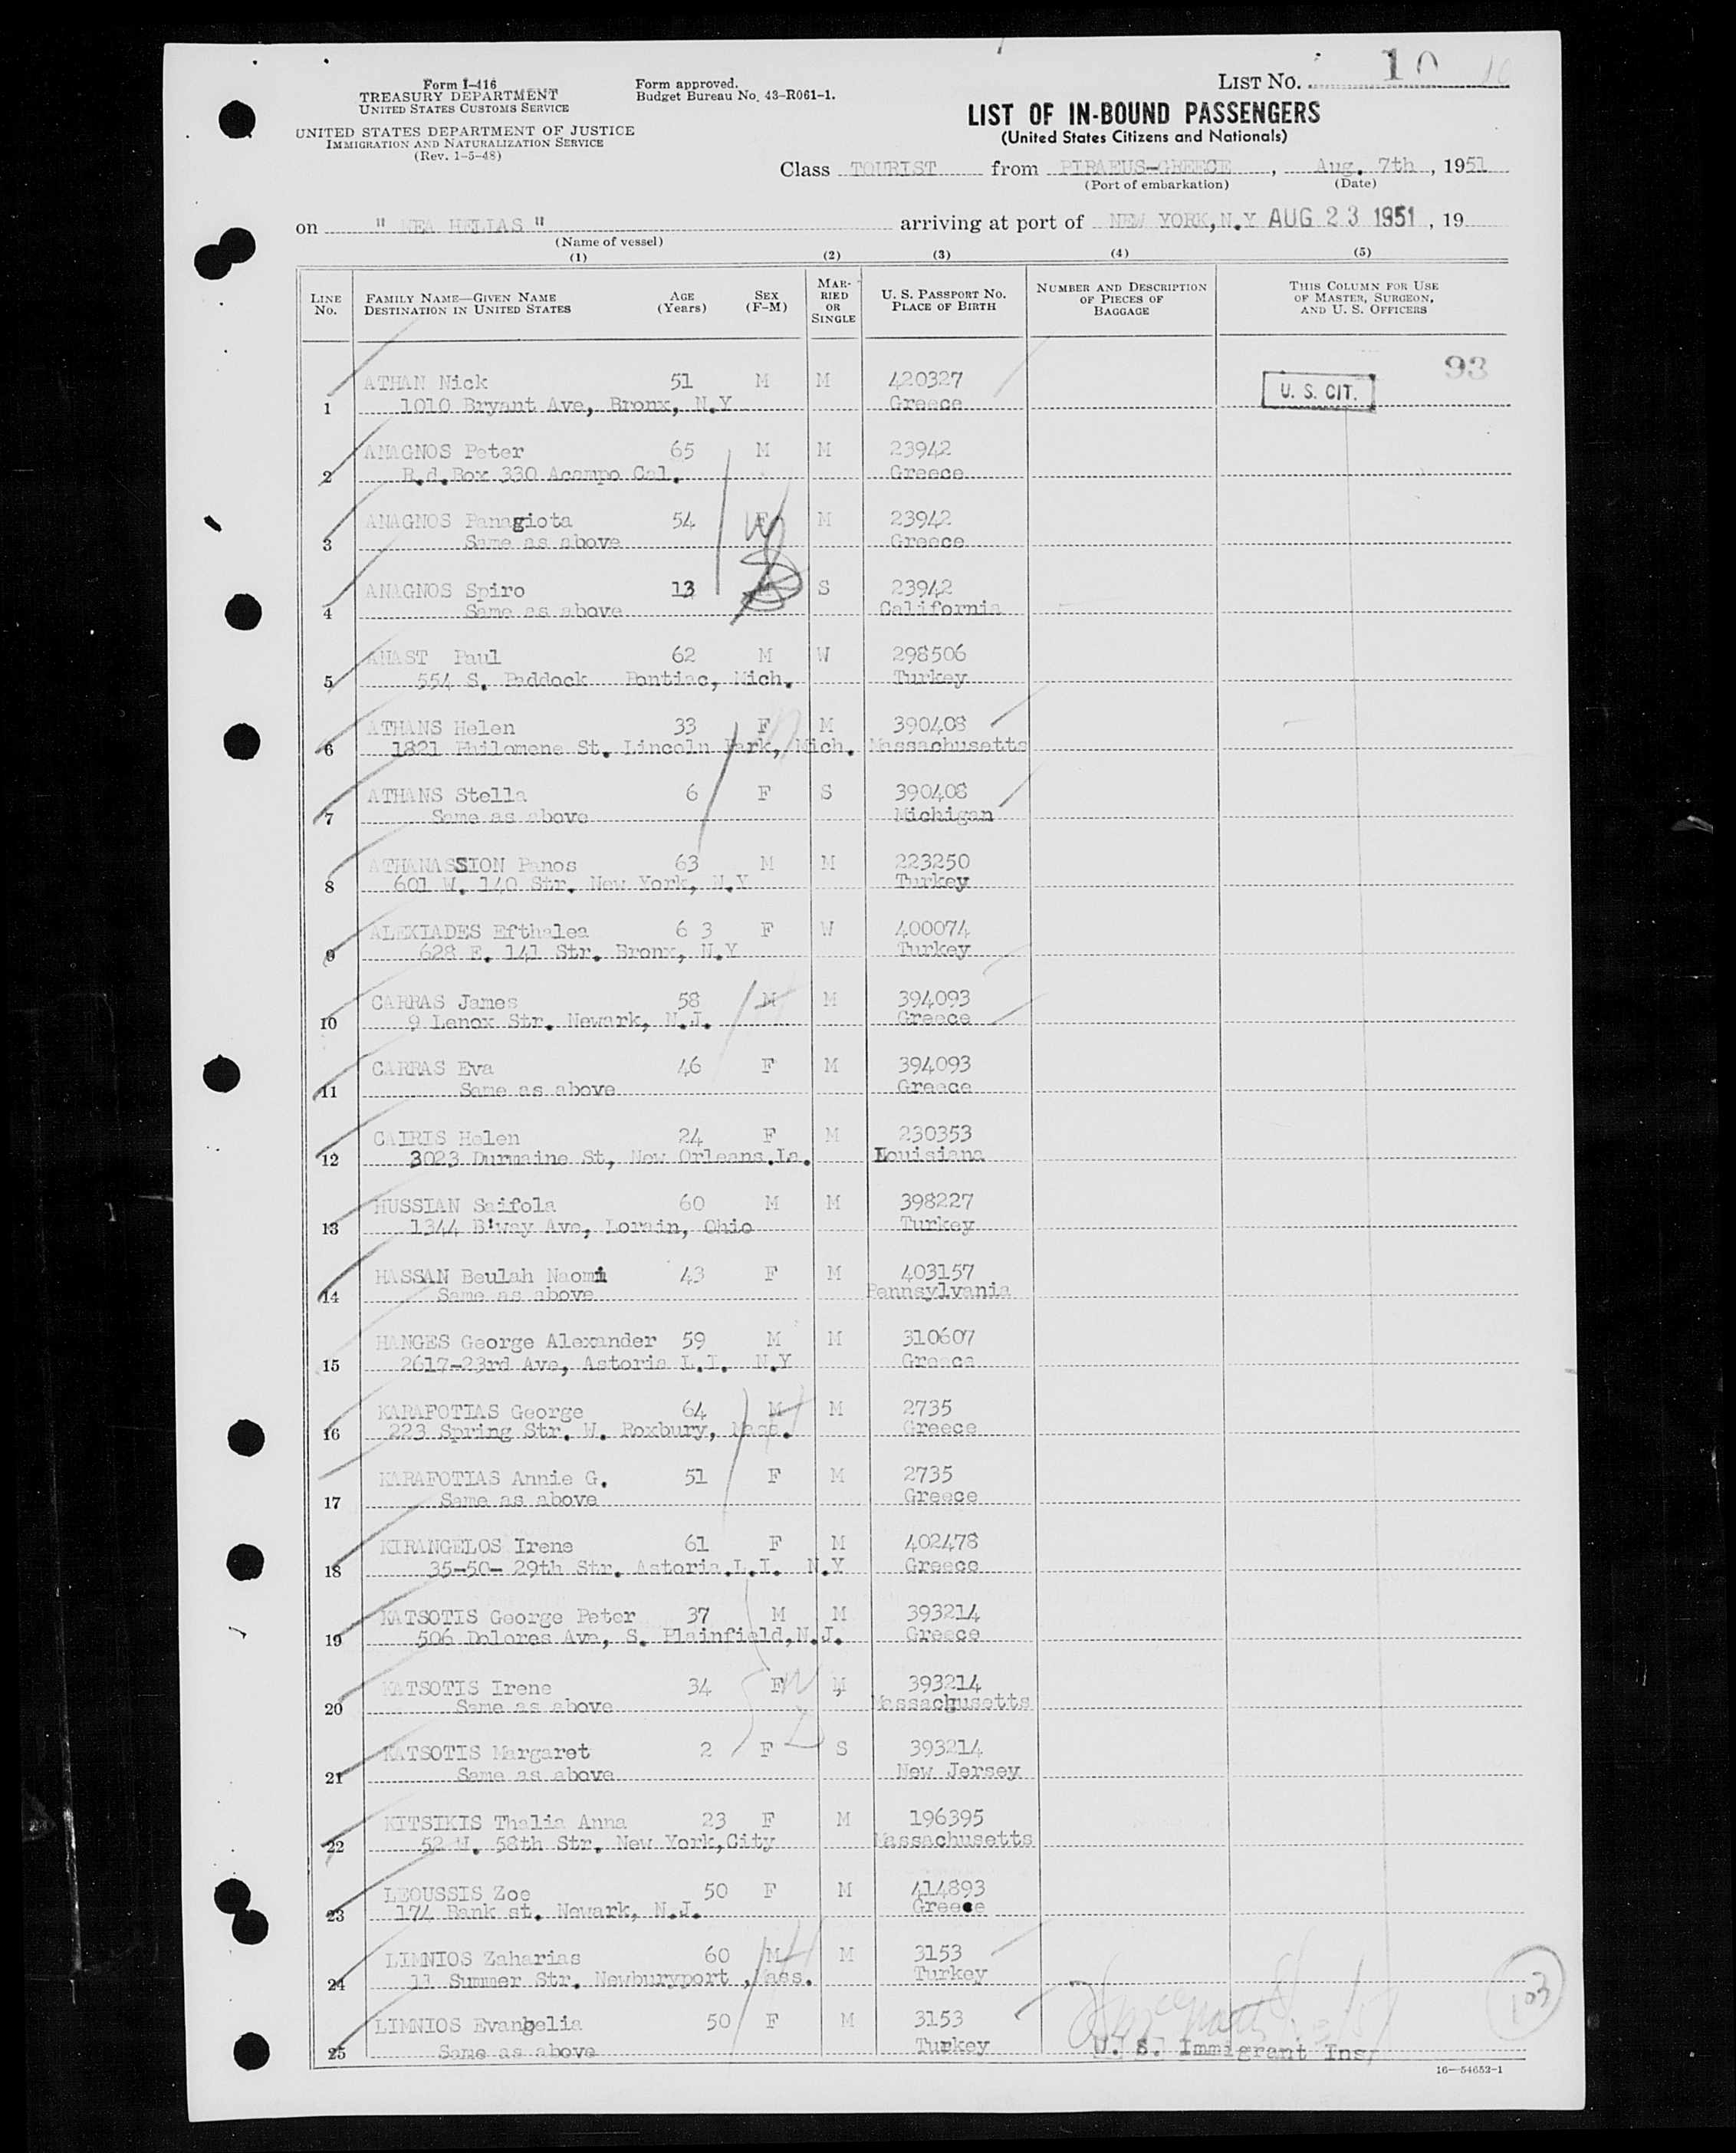 LIST NO. 10 10
Form I-416
TREASURY DEPARTMENT
UNITED STATES CUSTOMS SERVICE
Form approved.
Budget Bureau No. 43-R061-1.
UNITED STATES DEPARTMENT OF JUSTICE
IMMIGRATION AND NATURALIZATION SERVICE
(Rev. 1-5-48)
LIST OF IN-BOUND PASSENGERS
(United States Citizens and Nationals)
Class TOURIST from PIRAEUS-GREECE, Aug. 7th, 1951
(Port of embarkation) (Date)
on " NEA HELLAS " arriving at port of NEW YORK,N.Y AUG 23 1951, 19
(Name of vessel)
(1) (2) (3) (4) (5)
LINE No. FAMILY NAME—GIVEN NAME DESTINATION IN UNITED STATES AGE (Years) SEX (F-M) MARRIED OR SINGLE U. S. PASSPORT NO. PLACE OF BIRTH NUMBER AND DESCRIPTION OF PIECES OF BAGGAGE THIS COLUMN FOR USE OF MASTER, SURGEON, AND U. S. OFFICERS
93
ATHAN Nick 51 M M 420327 U. S. CIT.
1 1010 Bryant Ave, Bronx, N.Y Greece
ANAGNOS Peter 65 M M 23942
2 R.d.Box 330 Acampo Cal. Greece
ANAGNOS Panagiota 54 F M 23942
3 Same as above Greece
ANAGNOS Spiro 13 S 23942
4 Same as above California
ANAST Paul 62 M W 298506
5 554 S. Paddock Pontiac, Mich. Turkey
ATHANS Helen 33 F M 390408
6 1821 Philomene St. Lincoln Park, Mich. Massachusetts
ATHANS Stella 6 F S 390408
7 Same as above Michigan
ATHANASSION Panos 63 M M 223250
8 601 W. 140 Str. New York, N.Y Turkey
ALEXIADES Efthalea 6 3 F W 400074
9 628 E. 141 Str. Bronx, N.Y Turkey
CARRAS James 58 M M 394093
10 9 Lenox Str. Newark, N.J. Greece
CARRAS Eva 46 F M 394093
11 Same as above Greece
CAIRIS Helen 24 F M 230353
12 3023 Durmaine St, New Orleans.La. Louisiana
HUSSIAN Saifola 60 M M 398227
13 1344 B'way Ave, Lorain, Ohio Turkey
HASSAN Beulah Naomi 43 F M 403157
14 Same as above Pennsylvania
HANGES George Alexander 59 M M 310607
15 2617-23rd Ave, Astoria L.I. N.Y Greece
KARAFOTIAS George 64 M M 2735
16 223 Spring Str. W. Roxbury, Mass. Greece
KARAFOTIAS Annie G. 51 F M 2735
17 Same as above Greece
KIRANGELOS Irene 61 F M 402478
18 35-50- 29th Str. Astoria.L.I. N.Y Greece
KATSOTIS George Peter 37 M M 393214
19 506 Dolores Ave, S. Plainfield,N.J. Greece
KATSOTIS Irene 34 F M 393214
20 Same as above Massachusetts
KATSOTIS Margaret 2 F S 393214
21 Same as above New Jersey
KITSIKIS Thalia Anna 23 F M 196395
22 52 W. 58th Str. New York,City Massachusetts
LEOUSSIS Zoe 50 F M 414893
23 174 Bank st. Newark, N.J. Greece
LIMNIOS Zaharias 60 M M 3153
24 11 Summer Str. Newburyport ,Mass. Turkey
LIMNIOS Evangelia 50 F M 3153
25 Same as above Turkey U. S. Immigrant Ins.
103
16—54652-1